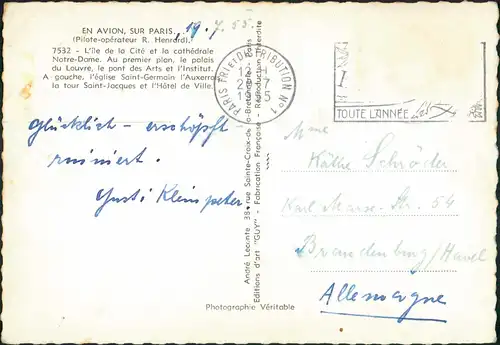 EN AVION, SUR PARIS.
(Pilote-opérateur R. Henrard).
19.7.55.
7532 - L'île de la Cité et la cathédrale
Notre-Dame. Au premier plan, le palais
du Louvre, le pont des Arts et l'Institut.
A gauche, l'église Saint-Germain l'Auxerrois
la tour Saint-Jacques et l'Hôtel de Ville.
glücklich - erschöpft -
ruiniert.
Gusti Kleinpeter
André Leconte 38, rue Sainte-Croix-de-la-Bretonnerie Paris
Editions d'art "GUY" - Fabrication Française - Réproduction interdite
Photographie Véritable
PARIS TRI et DISTRIBUTION N°1
TOUTE L'ANNÉE
Käthe Schröder
Karl Marx-Str. 54
Brandenburg/Havel
Allemagne